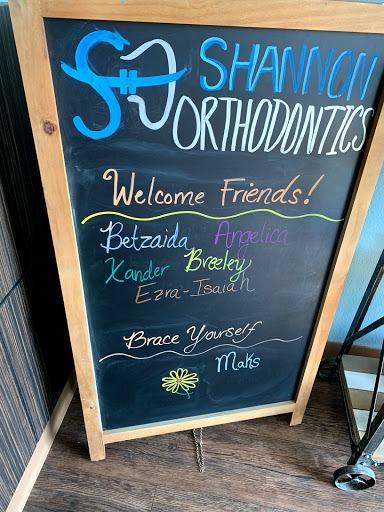 SHANNON
ORTHODONTICS
Welcome Friends!
Betzaida Angelica
Xander Breeley
Ezra-Isaiah
Brace Yourself
Maks